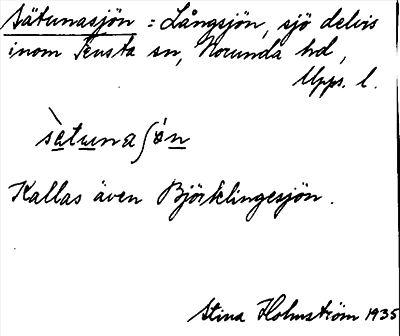 Sätunasjön = Långsjön, sjö delvis
inom Tensta sn, Norunda hd,
Upps. l.
sètunaʃö́n
Kallas även Björklingesjön.
Stina Holmström 1935